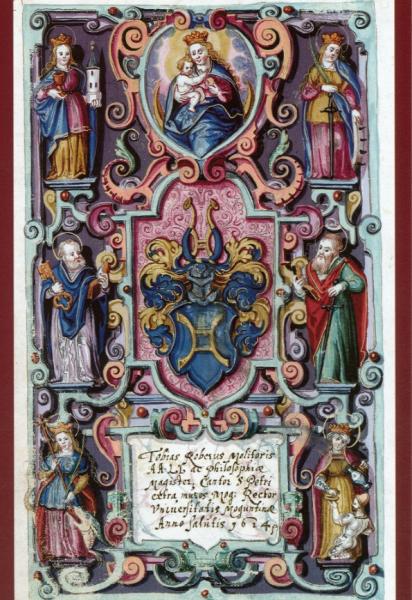 Tobias Roberus Molitoris
AA. LL. ac Philosophiæ
Magister, Cantor S. Petri
extra muros Mog: Rector
Vniuersitatis Moguntinæ
Anno salutis 1624